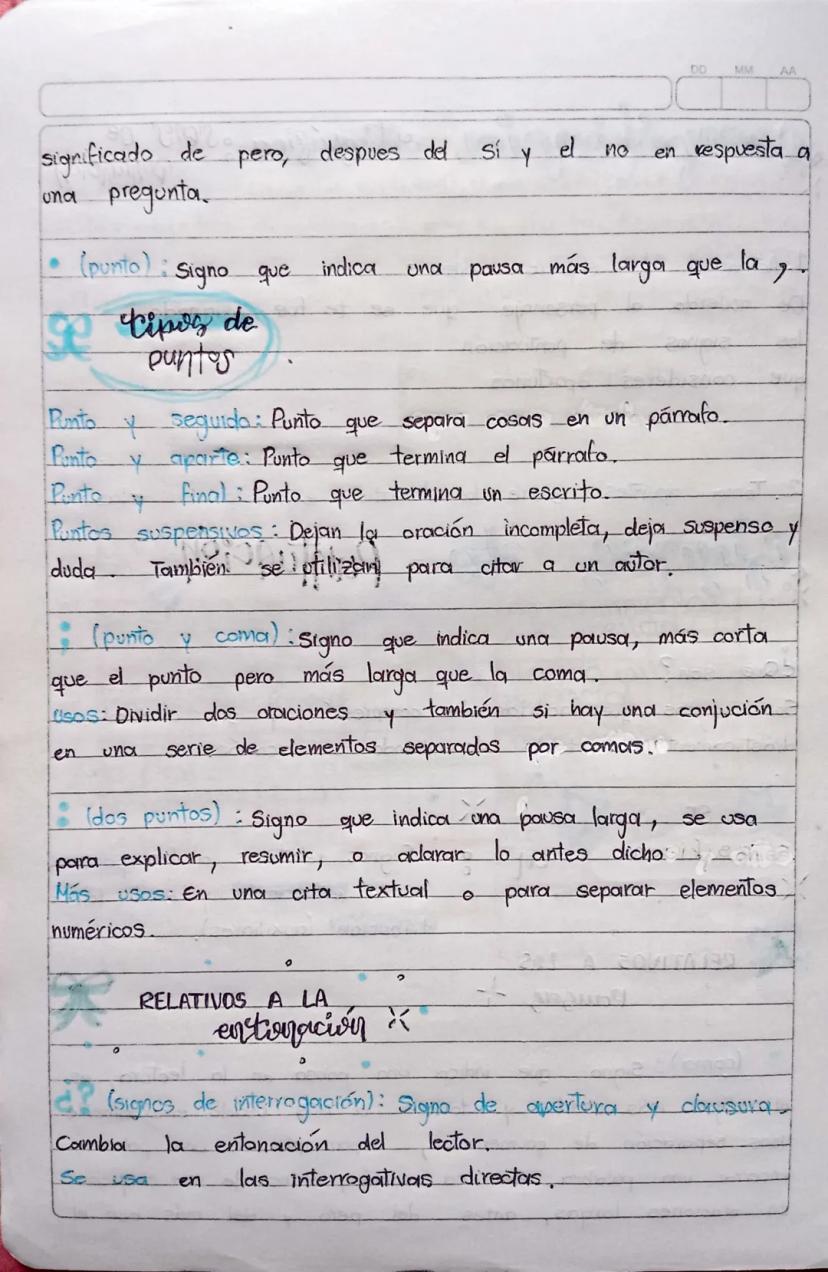 DD MM AA
significado de pero, despues del sí y el no en respuesta a
una pregunta.
• (punto): Signo que indica una pausa más larga que la ,.
tipos de
puntos .
Punto y seguido: Punto que separa cosas en un párrafo.
Punto y aparte: Punto que termina el párrafo.
Punto y final: Punto que termina un escrito.
Puntos suspensivos: Dejan la oración incompleta, deja suspenso y
duda. También se utilizan para citar a un autor.
; (punto y coma): Signo que indica una pausa, más corta
que el punto pero más larga que la coma.
Usos: Dividir dos oraciones y también si hay una conjución
en una serie de elementos separados por comas.
: (dos puntos): Signo que indica una pausa larga, se usa
para explicar, resumir, o aclarar lo antes dicho.
Más usos: En una cita textual o para separar elementos
numéricos.
RELATIVOS A LA
entonación
¿? (signos de interrogación): Signo de apertura y clausura.
Cambia la entonación del lector.
Se usa en las interrogativas directas.